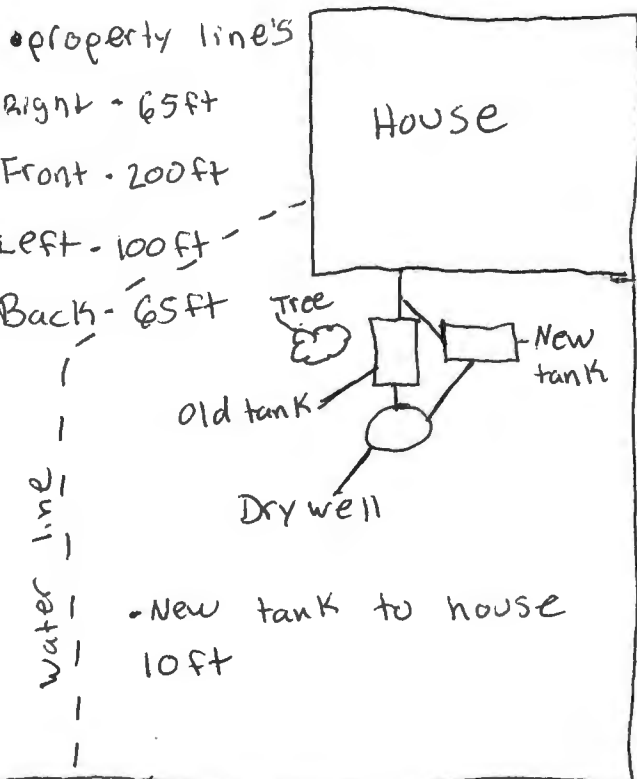 •property line's
Right - 65ft
House
Front - 200ft
Left - 100ft
Back - 65ft
Tree
New
tank
Old tank
Dry well
water line
•New tank to house
10ft